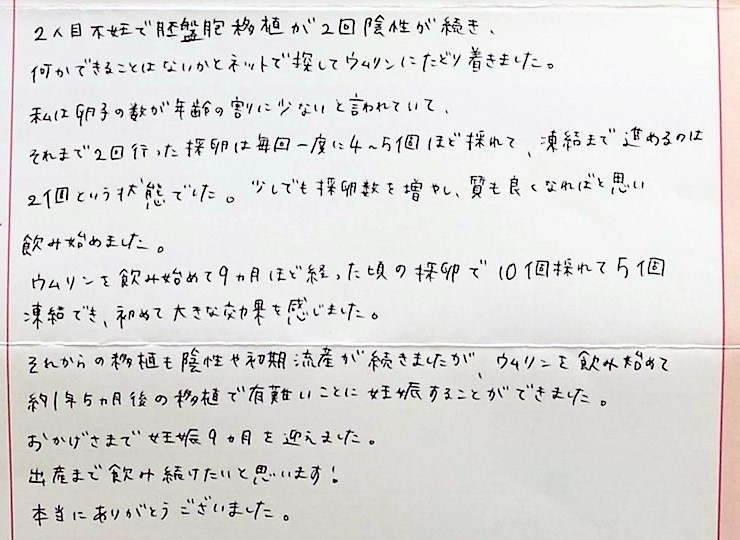 2人目不妊で胚盤胞移植が2回陰性が続き、
何かできることはないかとネットで探してウムリンにたどり着きました。
私は卵子の数が年齢の割に少ないと言われていて、
それまで2回行った採卵は毎回一度に4〜5個ほど採れて、凍結まで進めるのは
2個という状態でした。少しでも採卵数を増やし、質も良くなればと思い
飲み始めました。
ウムリンを飲み始めて9ヵ月ほど経った頃の採卵で10個採れて5個
凍結でき、初めて大きな効果を感じました。
それからの移植も陰性や初期流産が続きましたが、ウムリンを飲み始めて
約1年5ヵ月後の移植で有難いことに妊娠することができました。
おかげさまで妊娠9ヵ月を迎えました。
出産まで飲み続けたいと思います!
本当にありがとうございました。